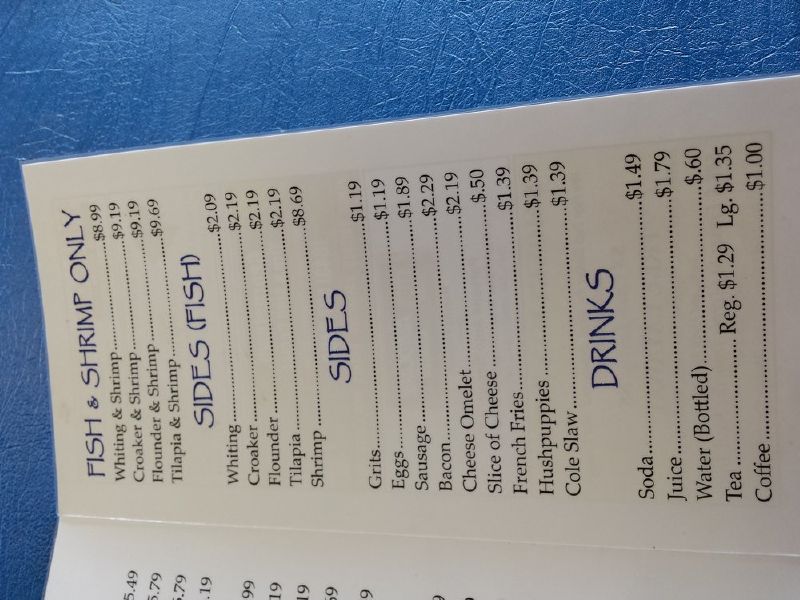 FISH & SHRIMP ONLY
Whiting & Shrimp $8.99
Croaker & Shrimp $9.19
Flounder & Shrimp $9.19
Tilapia & Shrimp $9.69
SIDES (FISH)
Whiting $2.09
Croaker $2.19
Flounder $2.19
Tilapia $2.19
Shrimp $8.69
SIDES
Grits $1.19
Eggs $1.19
Sausage $1.89
Bacon $2.29
Cheese Omelet $2.19
Slice of Cheese $.50
French Fries $1.39
Hushpuppies $1.39
Cole Slaw $1.39
DRINKS
Soda $1.49
Juice $1.79
Water (Bottled) $.60
Tea Reg. $1.29 Lg. $1.35
Coffee $1.00